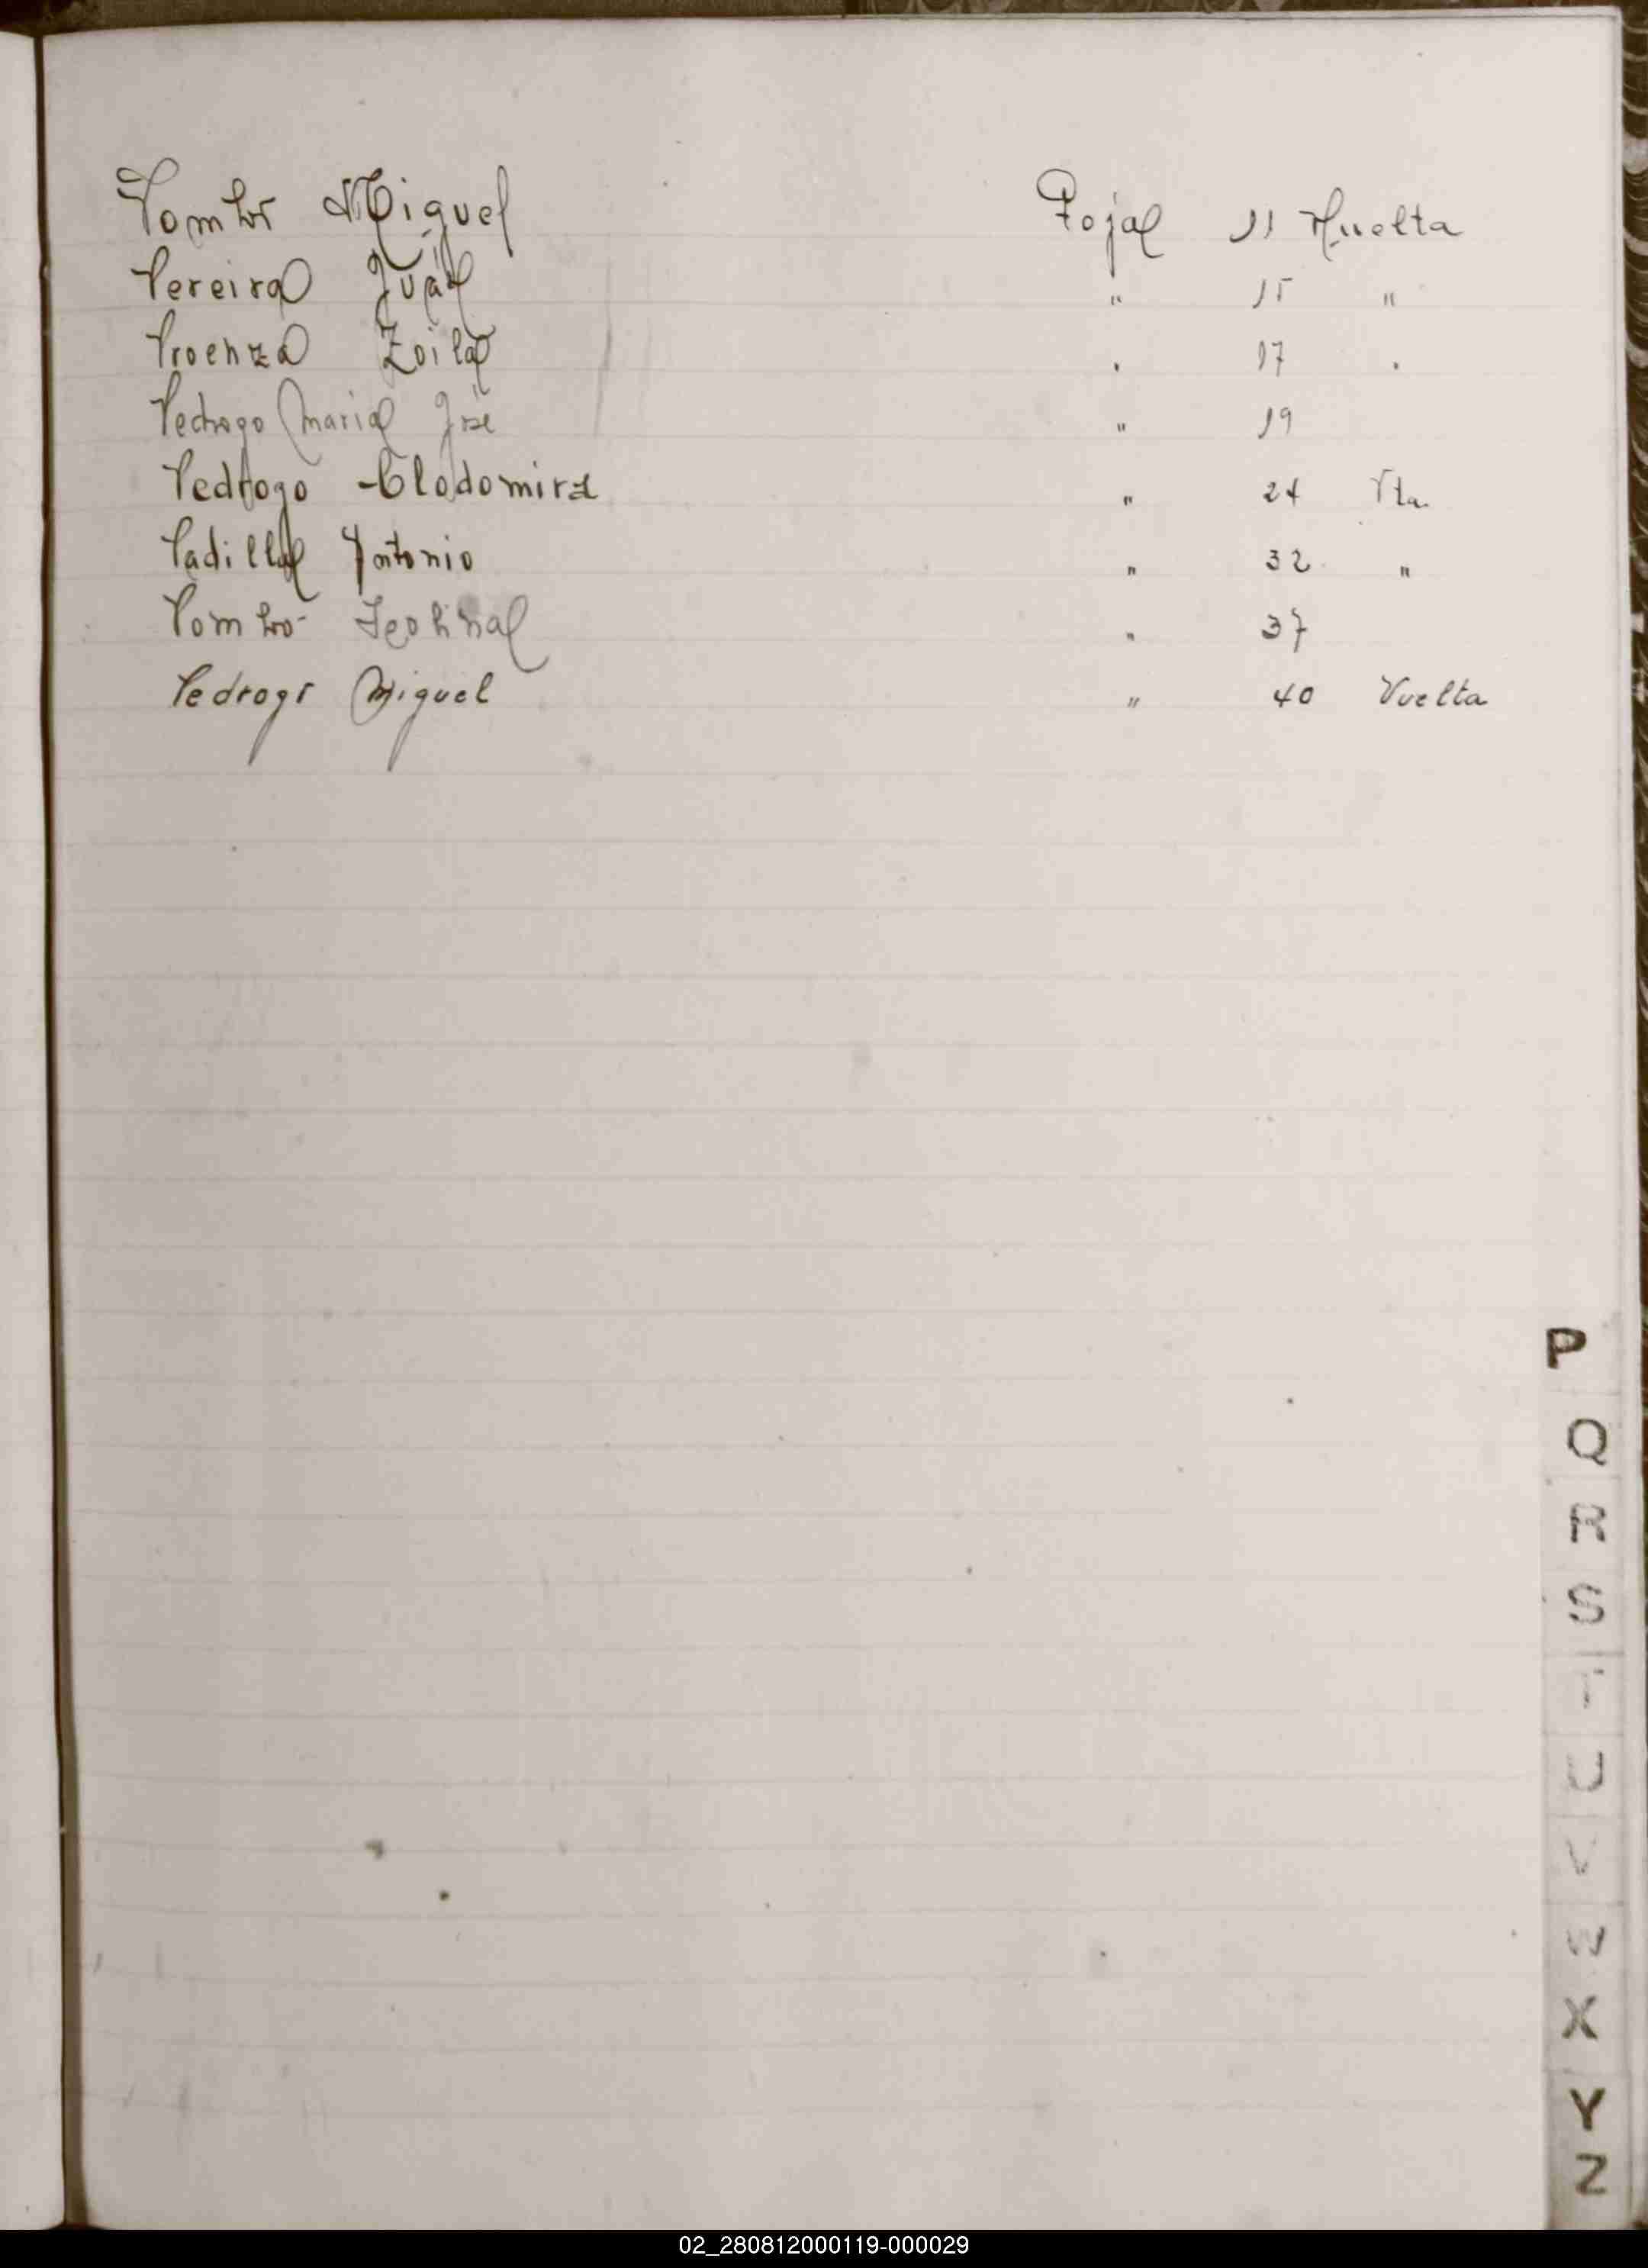 Pombo Miguel Foja 11 Vuelta
Pereira Juan " 15 "
Proenza Zoila " 17 "
Pedrogo Maria José " 19
Pedrogo Clodomira " 24 Vta.
Padilla Antonio " 32 "
Pombo " 37
Pedrogo Miguel " 40 Vuelta
P
Q
R
S
T
U
V
W
X
Y
Z
02_280812000119-000029